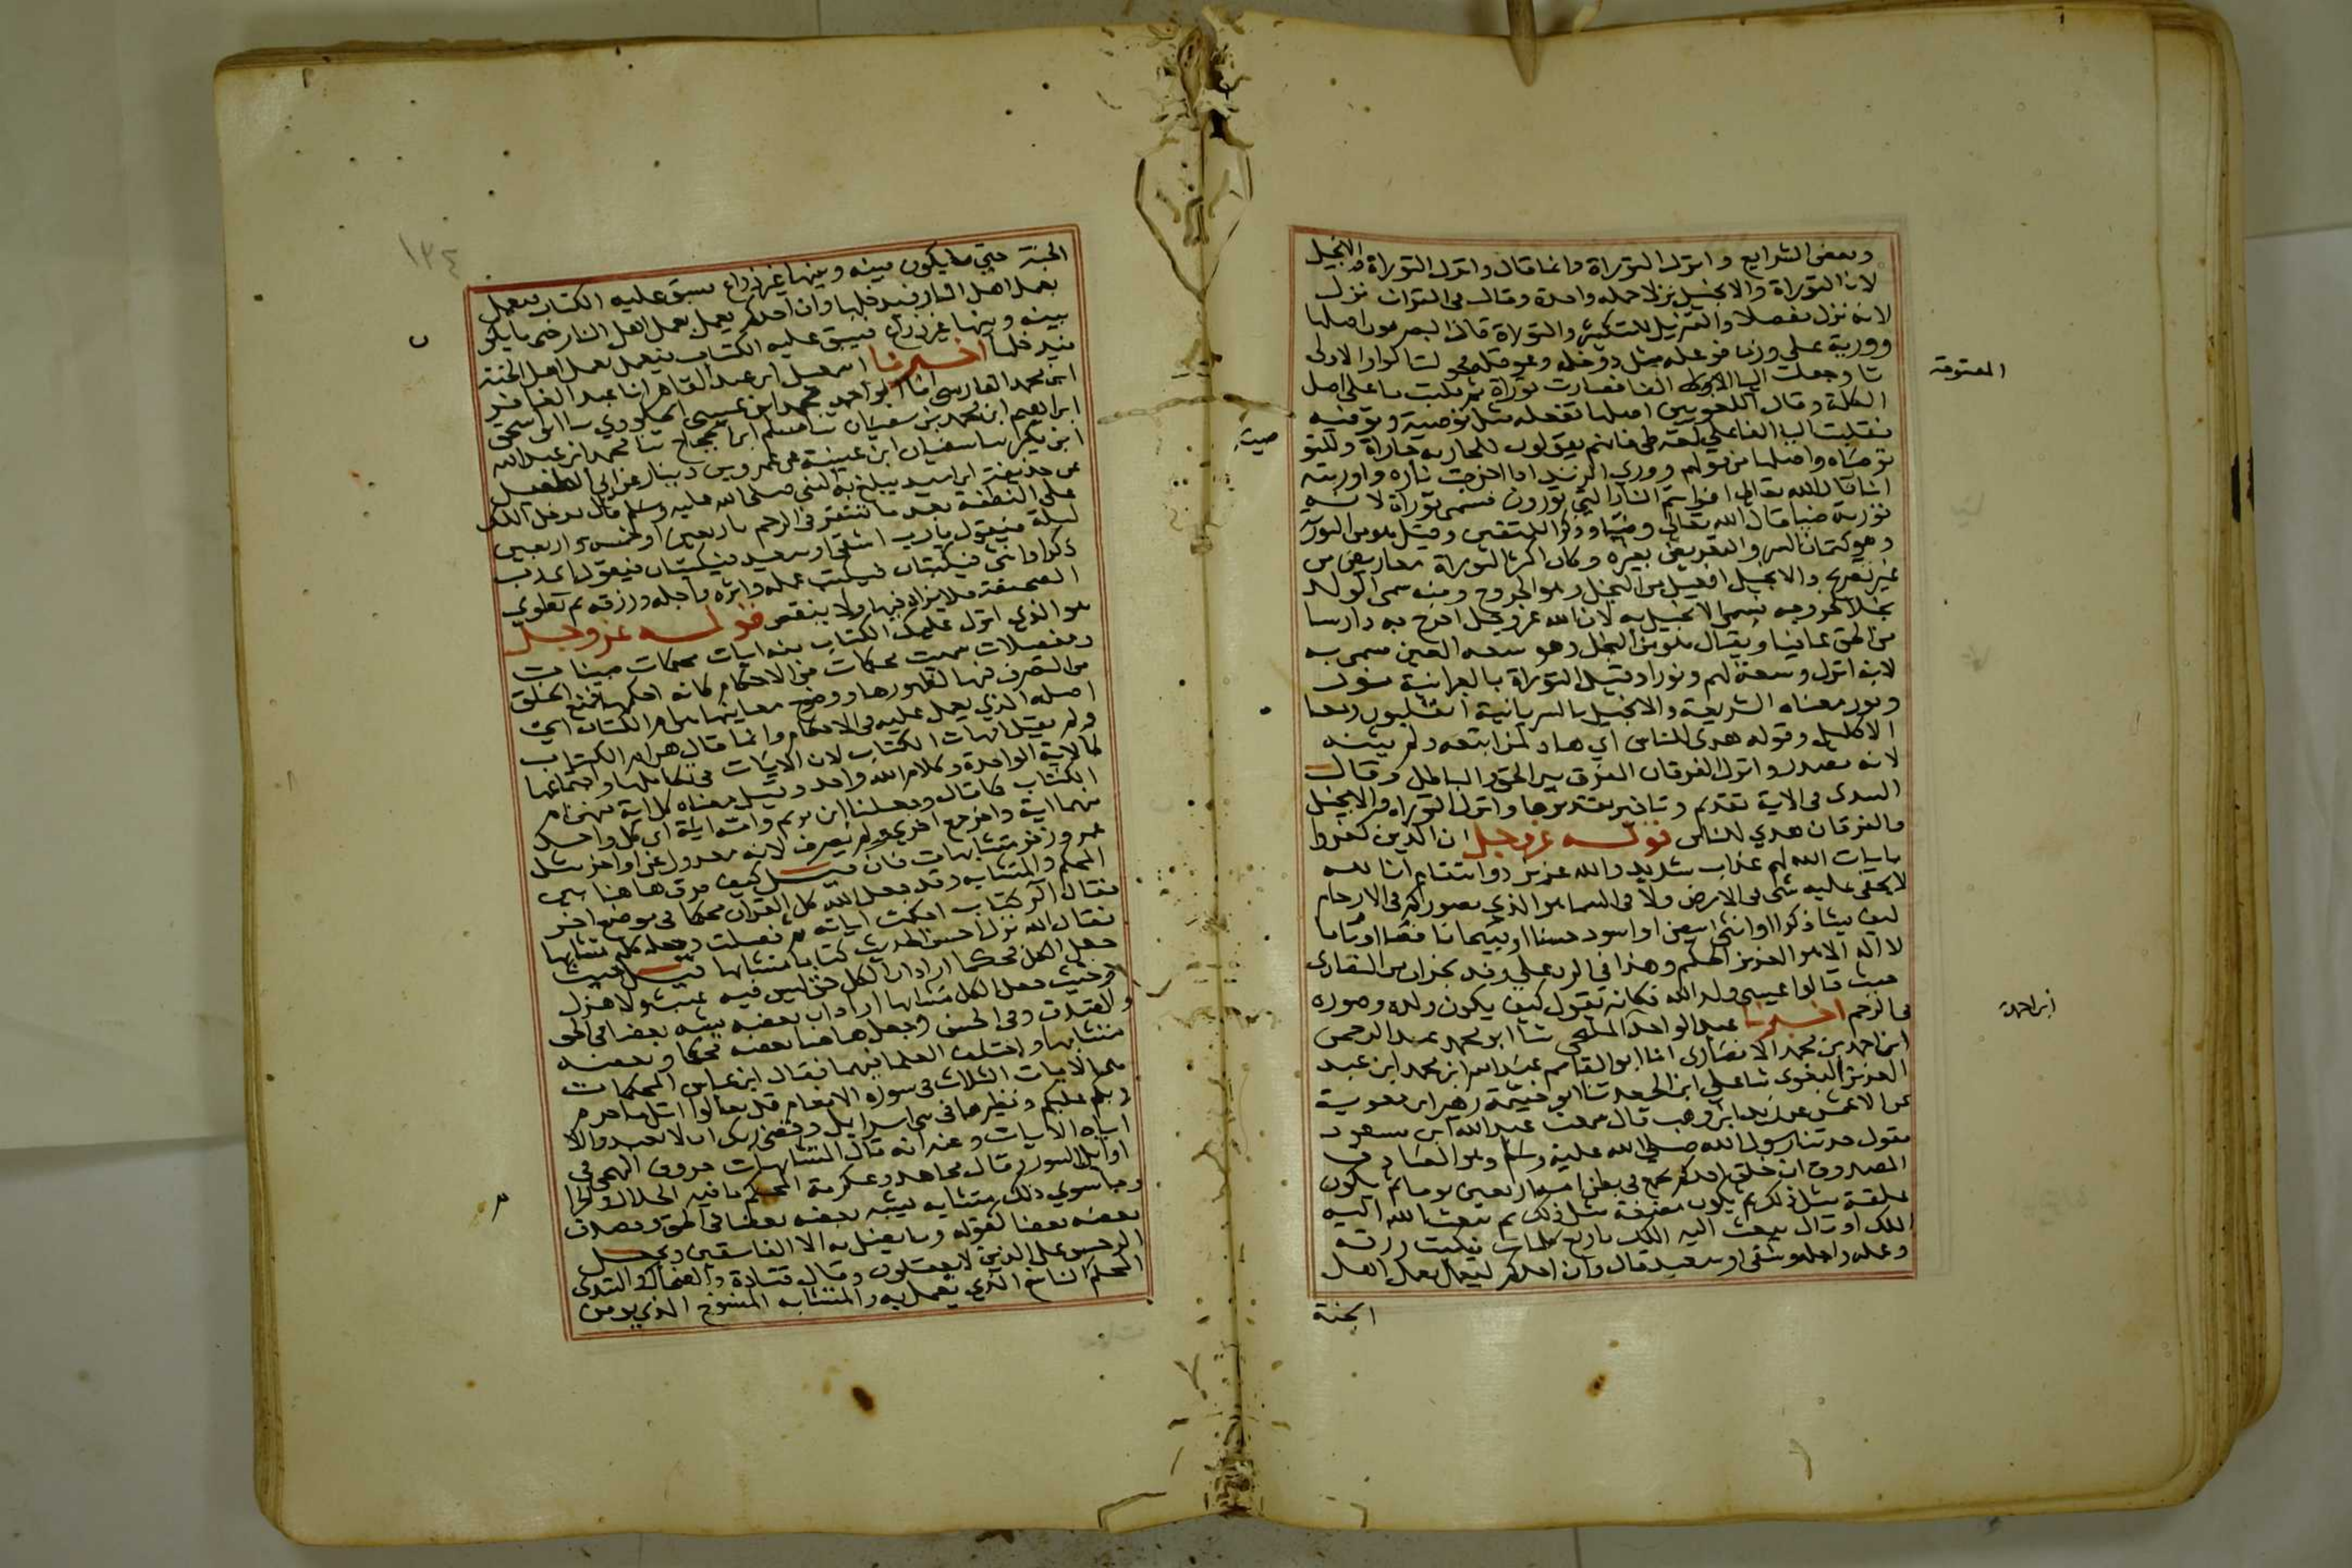 وبعض الشرايع وانزل التوراة وانما قال وانزل التوراة والانجيل
لان التوراة والانجيل نزلا جمله واحدة وقال في القران نزل
لانه نزل مفصلا والتنزيل للتكثير والتوراة قال البصريون اصلها
وورية على وزن فوعله مثل دوخله وحوقله فحولت الواو الاولى
تا وجعلت اليا المفتوحة الفا فصارت توراة ثم كتبت با على اصل
الكلمة وقال الكوفيين اصلها تفعله مثل توصية وتوفيه
فقلبت اليا الفا على لغة طي فانهم يقولون للجاريه جاراة وللتو
توصاه واصلها من قولهم ووري الزند اذا اخرجت ناره واوريته
انا قال الله تعالى افرايتم النار التي تورون فسمى توراة لانه
نور وضيا قال الله تعالى وضيا وذكرا للمتقين وقيل هو من التوريه
وهو كتمان السر والتعريض بغيره وكان اكثر التوراة معاريض من
غير تصريح والانجيل افعيل من النجل وهو الخروج ومنه سمى الولد
نجلا لخروجه فسمى الانجيل به لان الله عز وجل اخرج به دارسا
من الحق عافيا ويقال هو من النجل وهو سعه العين سمى به
لانه انزل وسعة لهم ونورا وقيل التوراة بالعبرانية
وتور معناه الشريعة والانجيل بالسريانية انقليون ومعنا
الاكليل وقوله هدى للناس اي هاد لمن اتبعه ولم يثنه
لانه مصدر وانزل الفرقان المفرق بين الحق والباطل وقال
السدى في الاية تقديم وتاخير تقديرها وانزل التوراه والانجيل
والفرقان هدي للناس قوله عز وجل ان الذين كفروا
بايات الله لهم عذاب شديد والله عزيز ذو انتقام ان الله
لا يخفى عليه شى في الارض ولا في السما هو الذي يصوركم في الارحام
كيف يشا ذكرا او انثى ابيض او اسود حسنا او قبيحا تاما او ناقصا
لا اله الا هو العزيز الحكيم وهذا في الرد على وفد نجران من النصارى
حيث قالوا عيسى ولد الله فكانه يقول كيف يكون ولده وصوره
في الرحم اخبرنا عبد الواحد المليحي ثنا ابو محمد عبد الرحمن
ابن احمد بن محمد الانصاري انا ابو القاسم عبد الله ابن محمد ابن عبد
العزيز البغوى ثنا علي ابن الجعد ثنا ابو خيثمة زهير ابن معوية
عن الاعمش عن زيد ابن وهب قال سمعت عبد الله ابن مسعود
يقول حدثنا رسول الله صلى الله عليه وسلم وهو الصادق
المصدوق ان خلق احدكم يجمع في بطن امه اربعين يوما ثم يكون
علقة مثل ذلك ثم يكون مضغة مثل ذلك ثم يبعث الله اليه
الملك او قال يبعث اليه الملك باربع كلمات فيكتب رزقه
وعمله واجله وشقى او سعيد قال وان احدكم ليعمل بعمل اهل
الجنة
المفتوحة
صية
ابن احمد
١٣٤
الجنة حتى ما يكون بينه وبينها غير ذراع فيسبق عليه الكتاب فيعمل
بعمل اهل النار فيدخلها وان احدكم يعمل بعمل اهل النار حتى ما يكو
بينه وبينها غير ذراع فيسبق عليه الكتاب فيعمل بعمل اهل الجنة
فيدخلها اخبرنا اسمعيل ابن عبد القاهر انا عبد الغافر
ابن محمد الفارسي انا ابو احمد محمد ابن عيسى الجلودي ثنا ابو اسحق
ابراهيم ابن محمد بن سفيان ثنا مسلم ابن الحجاج ثنا محمد ابن عبد الله
ابن نمير ثنا سفيان ابن عيينة عن عمرو بن دينار عن ابي الطفيل
عن حذيفة ابن اسيد يبلغ به النبي صلى الله عليه وسلم قال يدخل الملك
على النطفة بعد ما تستقر في الرحم باربعين او خمس واربعين
ليلة فيقول يا رب اشقى او سعيد فيكتبان فيقول اي رب
ذكر او انثى فيكتبان فيكتب عمله واثره واجله ورزقه ثم تطوي
الصحيفة فلا يزاد فيها ولا ينقص قوله عز وجل
هو الذي انزل عليك الكتاب منه ايات محكمات مبينات
ومفصلات سميت محكمات من الاحكام كانه احكمها فمنع الخلق
من التصرف فيها لظهورها ووضوح معانيها هن ام الكتاب اي
اصله الذي يعمل عليه في الاحكام وانما قال هن ام الكتاب
ولم يقل امهات الكتاب لان الايات في تكاملها واجتماعها
كالاية الواحدة وكلام الله واحد وقيل معناه كل اية منهن ام
الكتاب كما قال وجعلنا ابن مريم وامه اية اي كل واحد
منهما اية واخر جمع اخرى ولم يصرف لانه معدول عن اواخر مثل
عمر وزفر متشابهات فان قيل كيف فرق هاهنا بين
المحكم والمتشابه وقد جعل الله كل القران محكما في موضع اخر
فقال الر كتاب احكمت اياته ثم فصلت وجعله كله متشابها
فقال الله نزل احسن الحديث كتابا متشابها قيل حيث
جعل الكل محكما اراد ان الكل حق ليس فيه عبث ولا هزل
وحيث جعل الكل متشابها اراد ان بعضه يشبه بعضا في الحق
والصدق وفي الحسن وجعل هاهنا بعضه محكما وبعضه
متشابها واختلف العلما فيهما فقال ابن عباس المحكمات
هي الايات الثلاث في سورة الانعام قل تعالوا اتل ما حرم
ربكم عليكم ونظيرها في بني اسرايل وقضى ربك ان لا تعبدوا الا
اياه الايات وعنه انه قال المتشابهات حروف التهجي في
اوايل السور وقال مجاهد وعكرمة المحكم ما فيه الحلال والحرا
وما سوى ذلك متشابه يشبه بعضه بعضا في الحق ويصدق
بعضه بعضا لقوله وما يضل به الا الفاسقين ويجعل
الرجس على الذين لا يعقلون وقال قتادة والضحاك والسدى
المحكم الناسخ الذي يعمل به والمتشابه المنسوخ الذي يومن